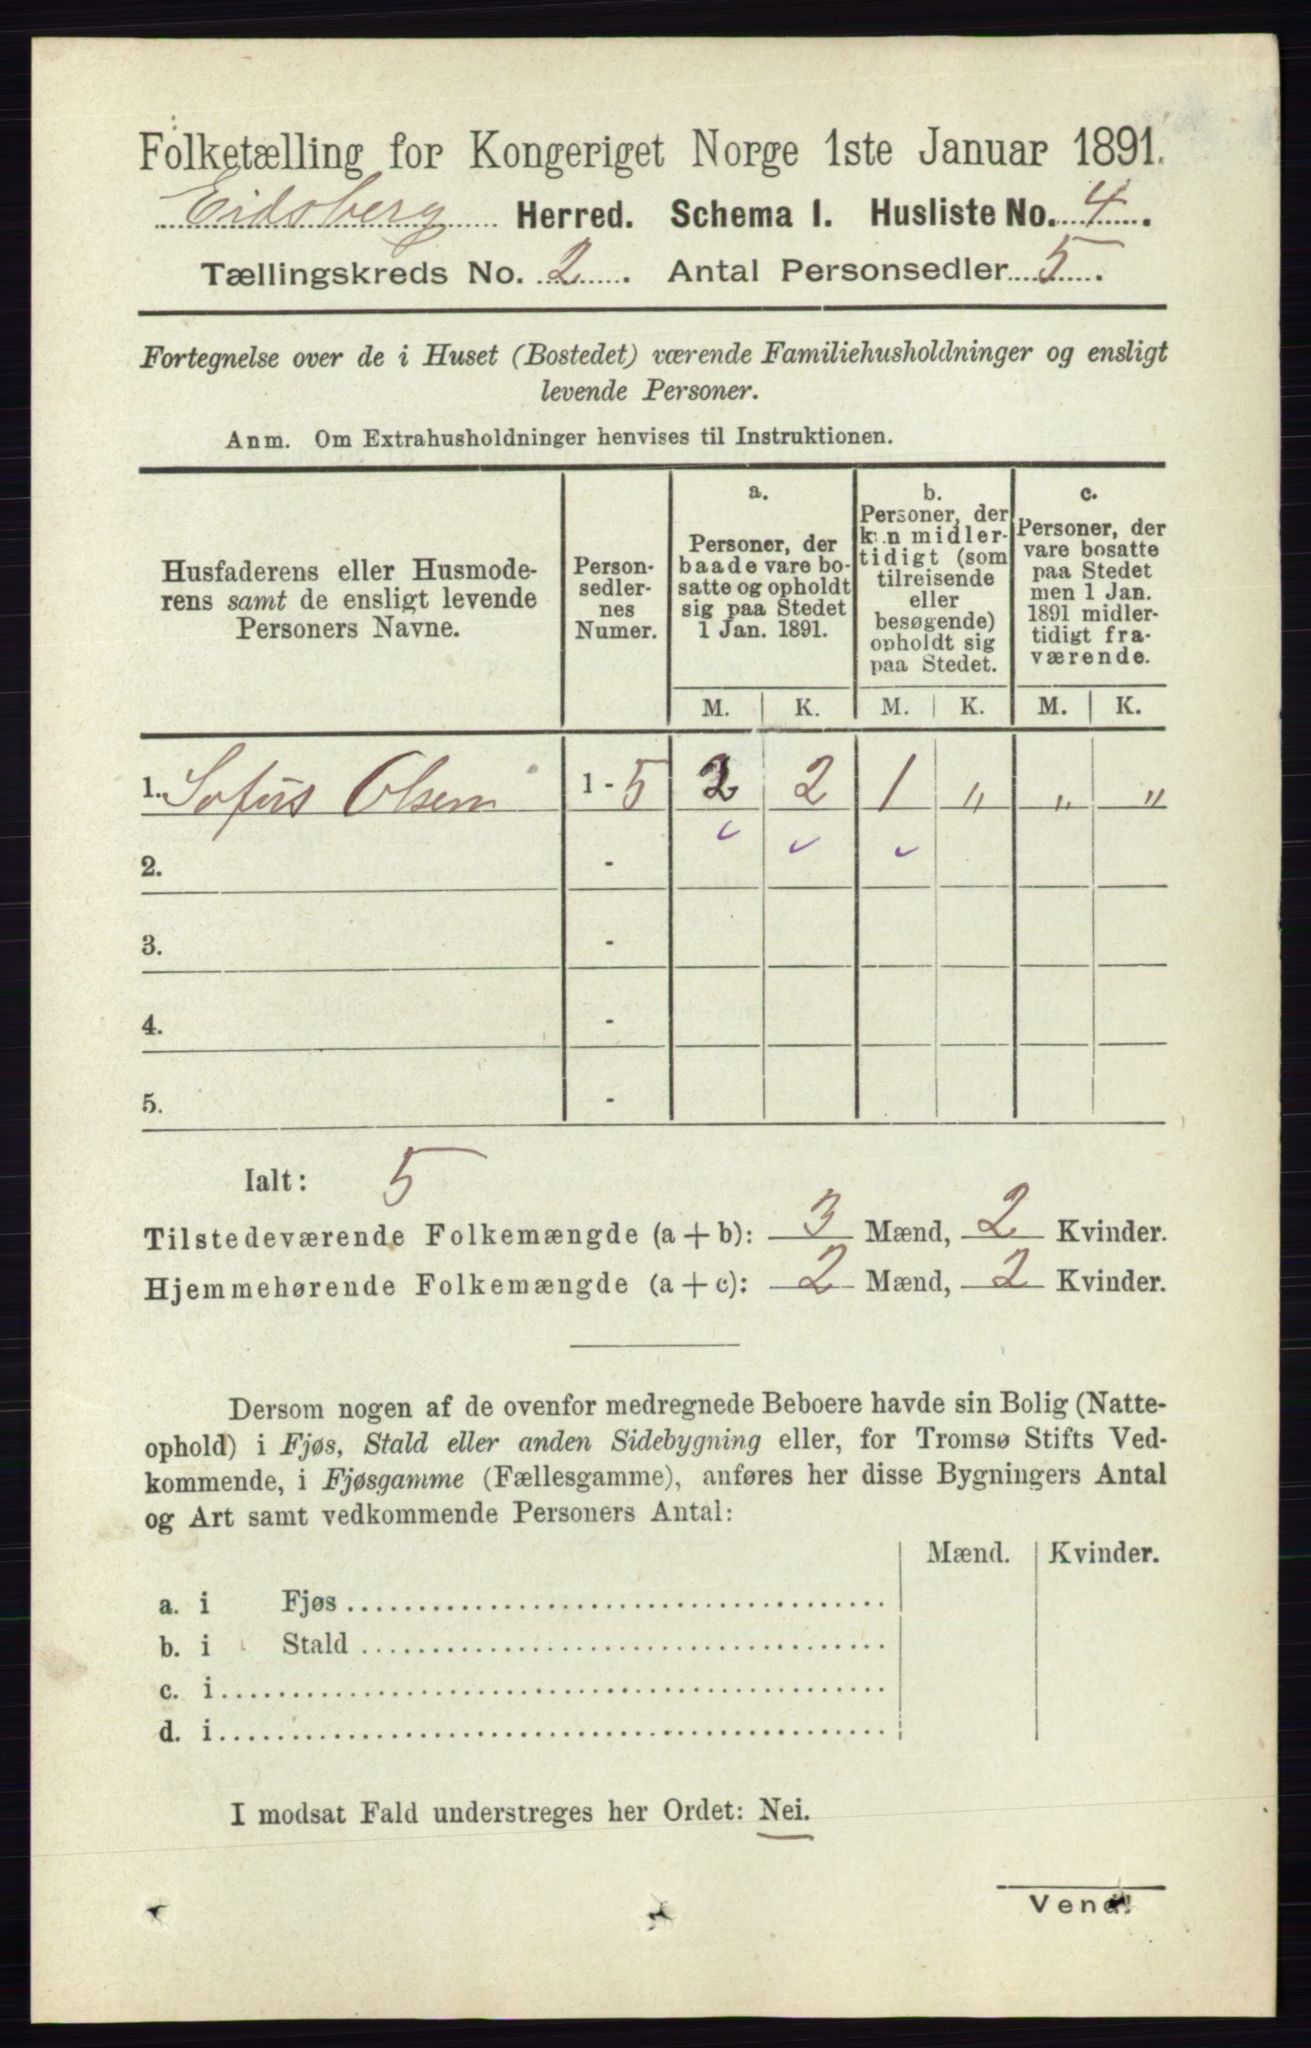 Folketælling for Kongeriget Norge 1ste Januar 1891.
Eidsberg Herred. Schema I. Husliste No. 4.
Tællingskreds No. 2. Antal Personsedler 5.
Fortegnelse over de i Huset (Bostedet) værende Familiehusholdninger og ensligt
levende Personer.
Anm. Om Extrahusholdninger henvises til Instruktionen.
Husfaderens eller Husmode-
rens samt de ensligt levende
Personers Navne.
Person-
sedler-
nes
Numer.
a.
Personer, der
baade vare bo-
satte og opholdt
sig paa Stedet
1 Jan. 1891.
b.
Personer, der
kun midler-
tidigt (som
tilreisende
eller
besøgende)
opholdt sig
paa Stedet.
c.
Personer, der
vare bosatte
paa Stedet
men 1 Jan.
1891 midler-
tidigt fra-
værende.
M. K. M. K. M. K.
1. Sofus Olsen 1 - 5 2 2 1 " " "
2. -
3. -
4. -
5. -
Ialt: 5
Tilstedeværende Folkemængde (a + b): 3 Mænd, 2 Kvinder.
Hjemmehørende Folkemængde (a + c): 2 Mænd, 2 Kvinder.
Dersom nogen af de ovenfor medregnede Beboere havde sin Bolig (Natte-
ophold) i Fjøs, Stald eller anden Sidebygning eller, for Tromsø Stifts Ved-
kommende, i Fjøsgamme (Fællesgamme), anføres her disse Bygningers Antal
og Art samt vedkommende Personers Antal:
Mænd. Kvinder.
a. i Fjøs
b. i Stald
c. i
d. i
I modsat Fald understreges her Ordet: Nei.
Vend!